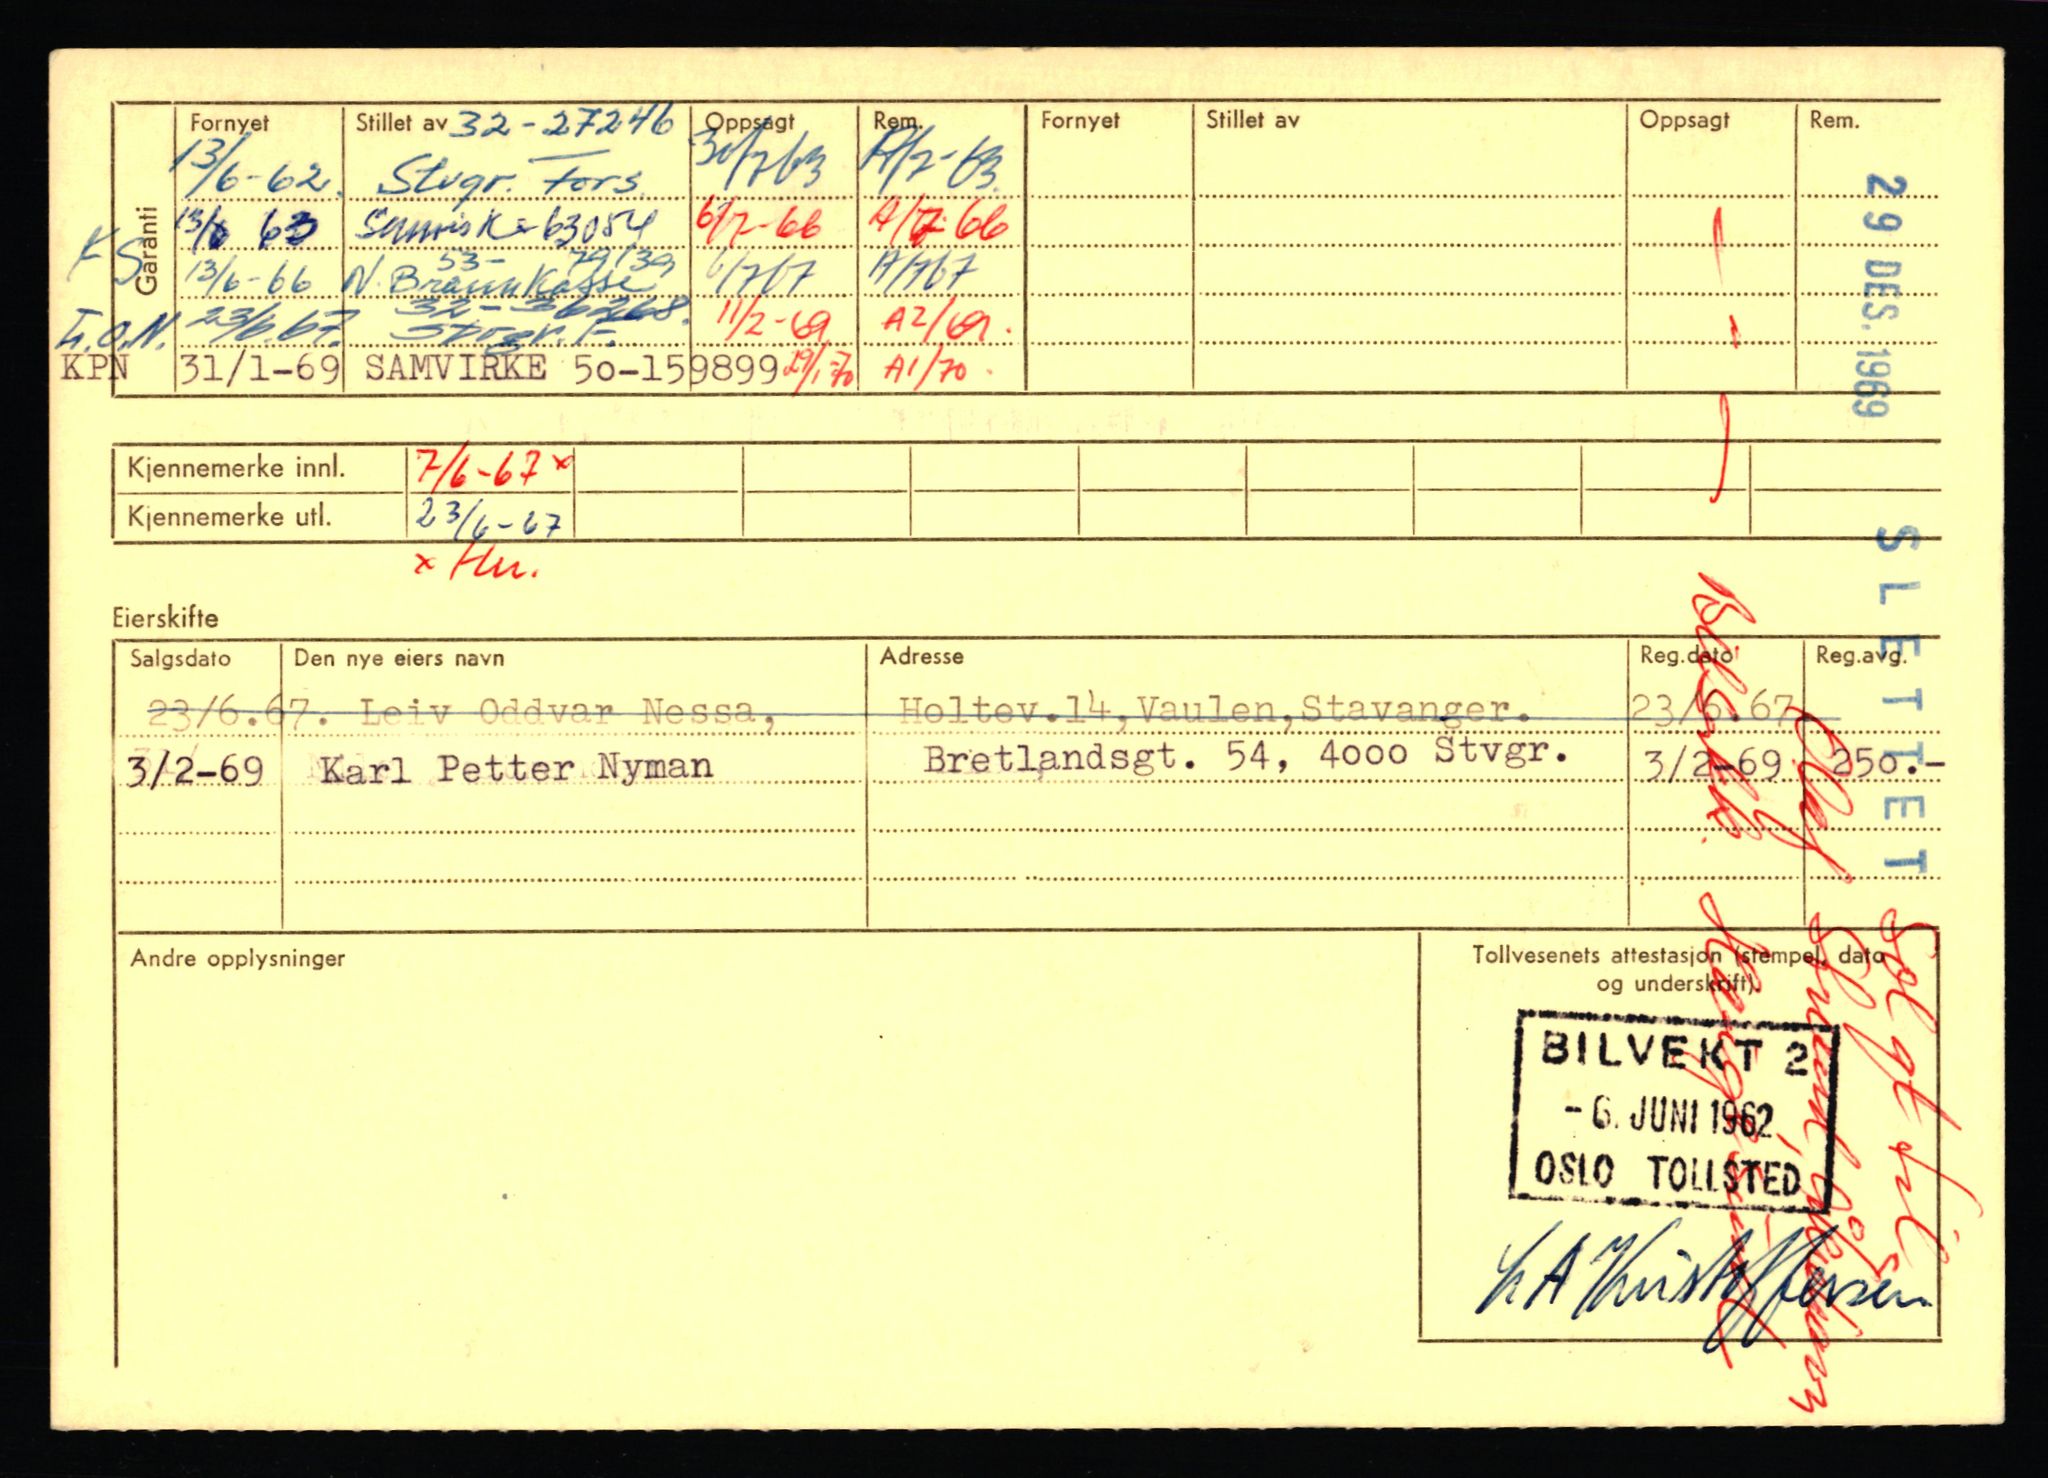 Garanti
Fornyet Stillet av 32-27246 Oppsagt Rem. Fornyet Stillet av Oppsagt Rem.
13/6-62. Stvgr. Fors 30/7 63 A/7-63.
13/6 63 63054 6/7-66 A/7-66
KS 53- 79139
13/6-66 N. Brannkasse 1/7 67 A/7 67
32-36268.
L.O.N. 23/6.67. Stvgr. F. 11/2-69 A2/69.
KPN 31/1-69 SAMVIRKE 50-159899 29/1-70 A1/70.
29 DES. 1969
SLETTET
Kjennemerke innl. 7/6-67 x
Kjennemerke utl. 23/6-67
x Hu.
Eierskifte
Salgsdato Den nye eiers navn Adresse Reg.dato Reg.avg.
23/6.67. Leiv Oddvar Nessa, Holtev.14, Vaulen, Stavanger. 23/6.67
3/2-69 Karl Petter Nyman Bretlandsgt. 54, 4000 Stvgr. 3/2-69 250.-
Solgt til
Olaf
Andre opplysninger
Tollvesenets attestasjon (stempel, dato
og underskrift).
BILVEKT 2
-6. JUNI 1962
OSLO TOLLSTED
A Kristoffersen